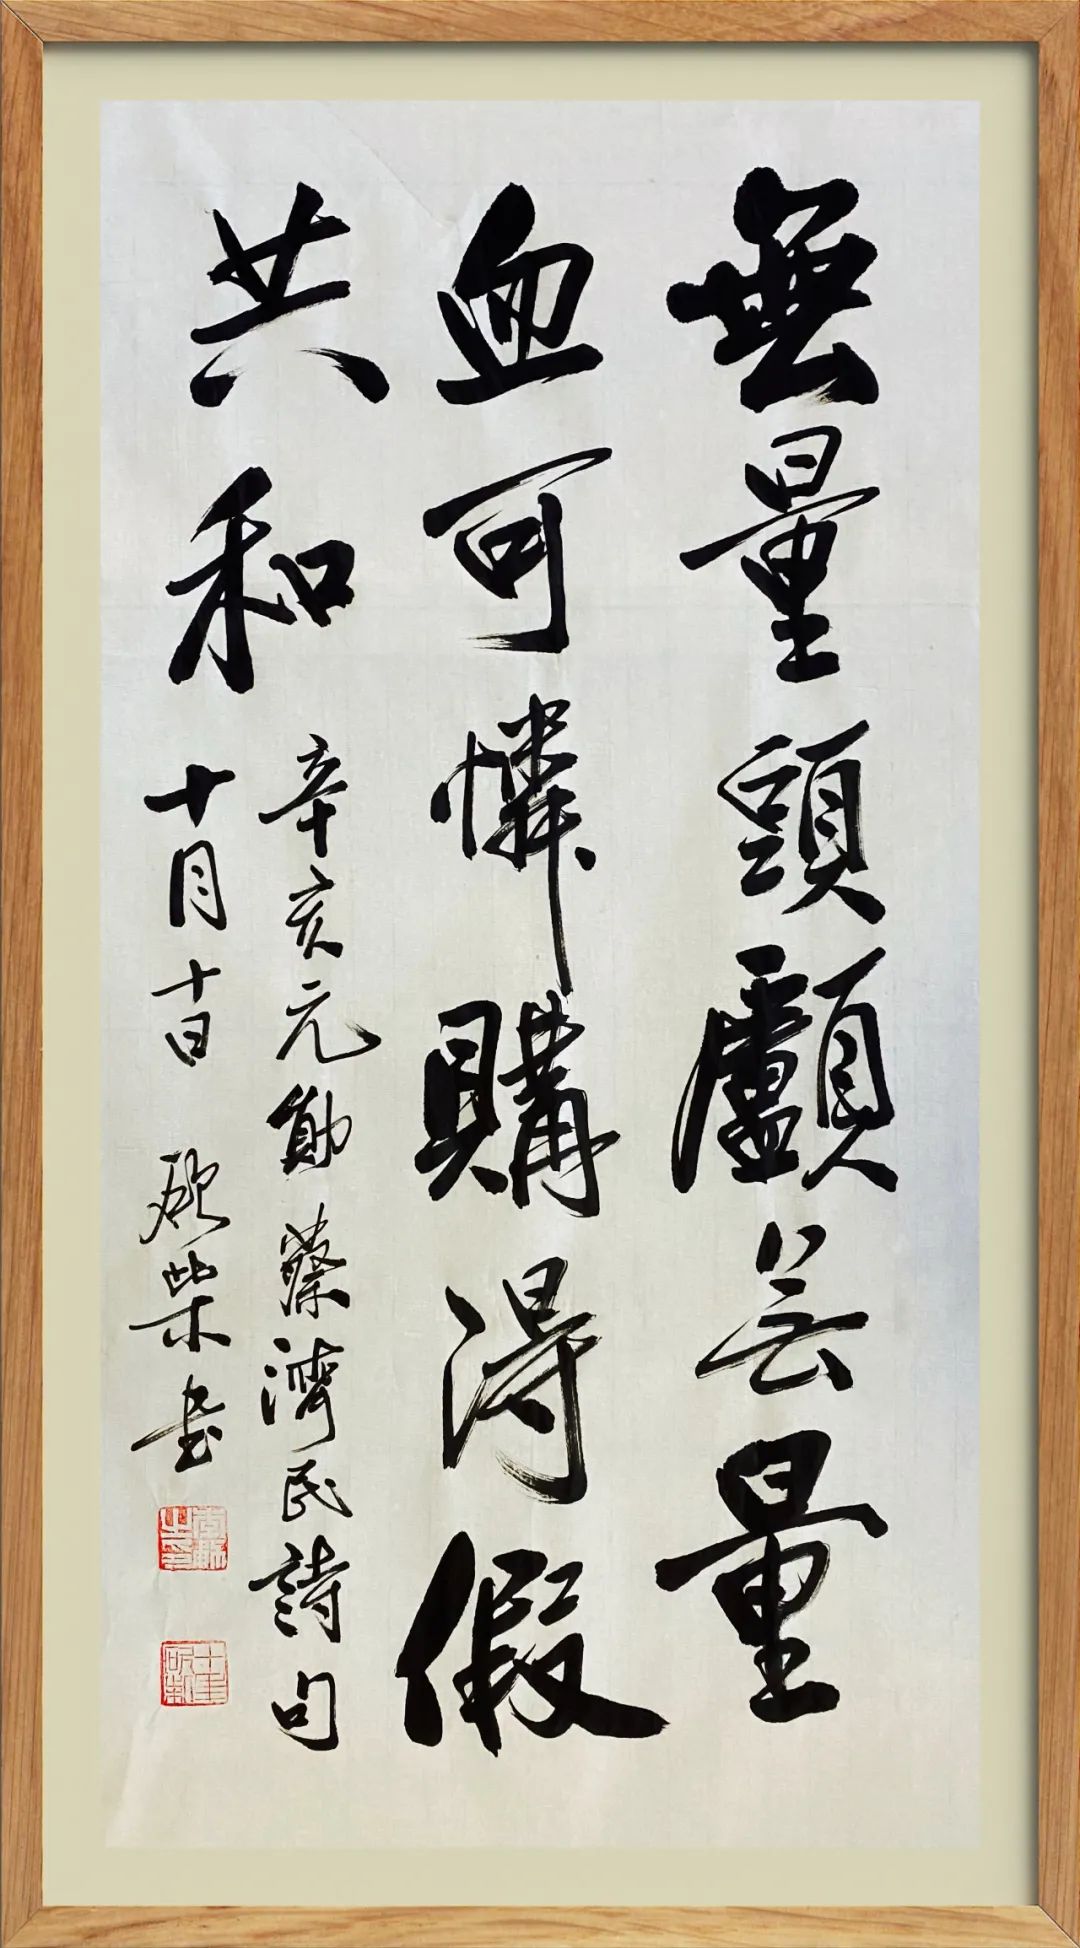 無量頭顱無量
血可憐購得假
共和
辛亥元勛蔡濟民詩句
十月十日
柴書